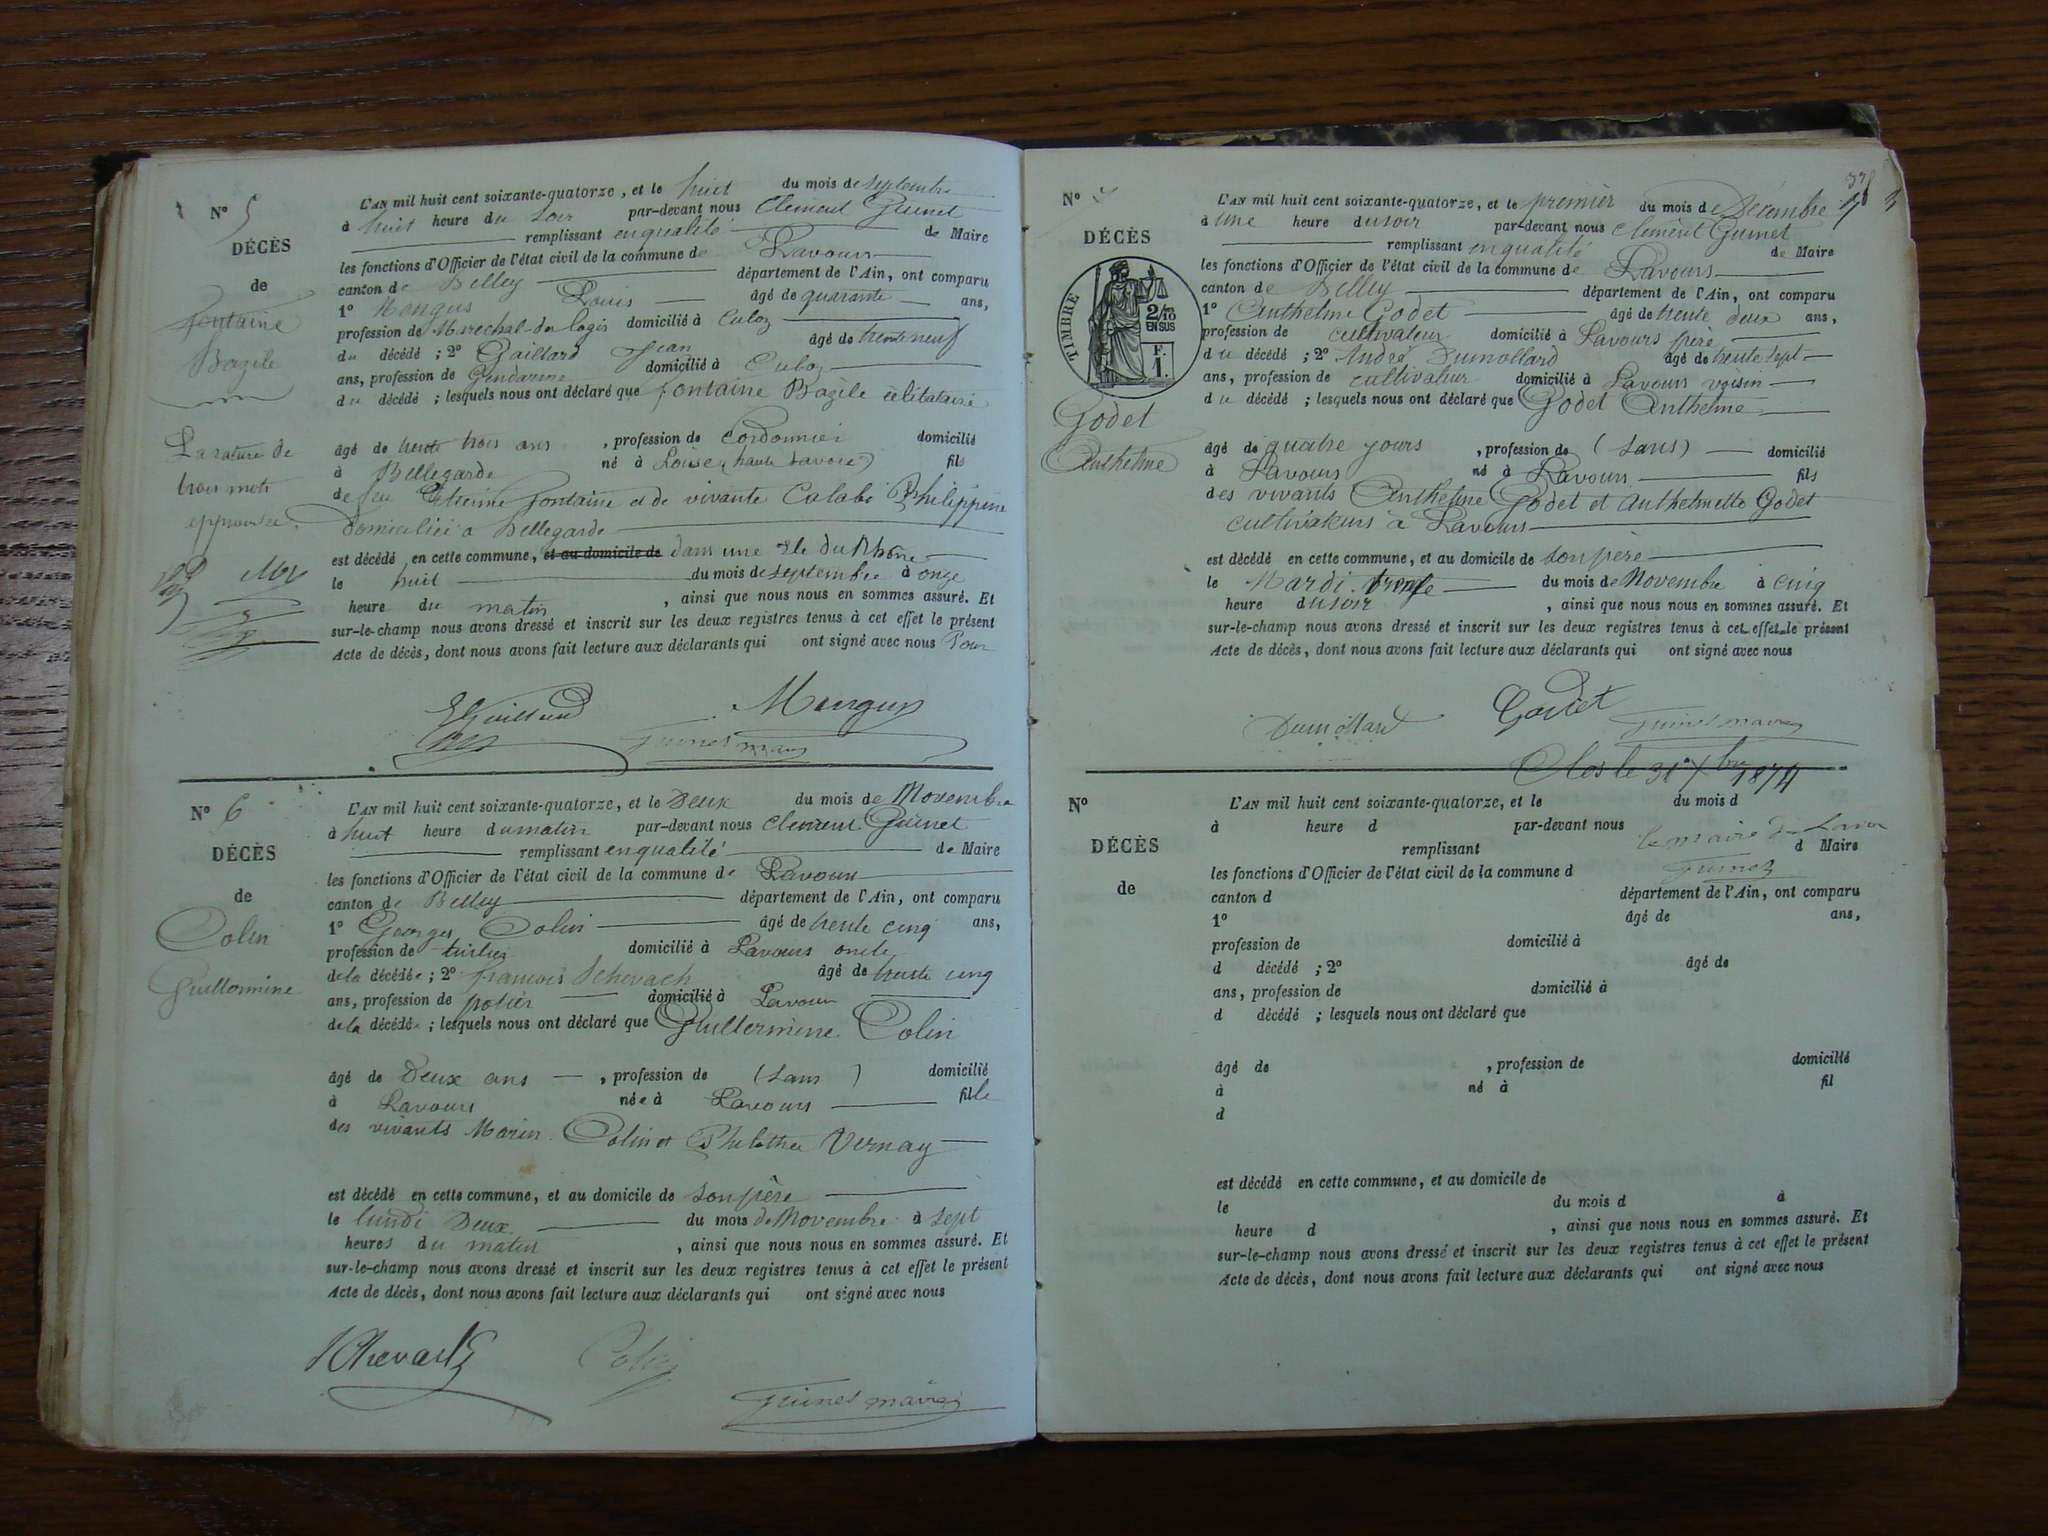 N° 5
DÉCÈS
de
Fontaine
Bazile
La rature de
trois mots
approuvée.
L'AN mil huit cent soixante-quatorze, et le huit du mois de septembre
à huit heure du soir par-devant nous Clément Guinet
remplissant en qualité de Maire
les fonctions d'Officier de l'état civil de la commune de Lavours
canton de Belley département de l'Ain, ont comparu
1° Mongus Louis âgé de quarante ans,
profession de Marechal-des logis domicilié à Culoz
du décédé ; 2° Gaillard Jean âgé de trente neuf
ans, profession de Gendarme domicilié à Culoz
du décédé ; lesquels nous ont déclaré que Fontaine Bazile célibataire
âgé de trente trois ans , profession de Cordonnier domicilié
à Bellegarde né à (haute Savoie) fils
de feu Etienne Fontaine et de vivante Calabi Philippine
domiciliée à Bellegarde
est décédé en cette commune, et au domicile de dans une Ile du Rhône
le huit du mois de septembre à onze
heure du matin , ainsi que nous nous en sommes assuré. Et
sur-le-champ nous avons dressé et inscrit sur les deux registres tenus à cet effet le présent
Acte de décès, dont nous avons fait lecture aux déclarants qui ont signé avec nous Pour
Gaillard Mongus
Guinet maire
N° 6
DÉCÈS
de
Colin
Guillermine
L'AN mil huit cent soixante-quatorze, et le Deux du mois de Novembre
à huit heure du matin par-devant nous Clément Guinet
remplissant en qualité de Maire
les fonctions d'Officier de l'état civil de la commune de Lavours
canton de Belley département de l'Ain, ont comparu
1° Georges Colin âgé de trente cinq ans,
profession de tuilier domicilié à Lavours oncle
de la décédée ; 2° françois Schevach âgé de trente cinq
ans, profession de potier domicilié à Lavours
de la décédée ; lesquels nous ont déclaré que Guillermine Colin
âgé de Deux ans , profession de (sans) domicilié
à Lavours née à Lavours fille
des vivants Marin Colin et Philothée Vernay
est décédé en cette commune, et au domicile de son père
le lundi Deux du mois de Novembre à sept
heures du matin , ainsi que nous nous en sommes assuré. Et
sur-le-champ nous avons dressé et inscrit sur les deux registres tenus à cet effet le présent
Acte de décès, dont nous avons fait lecture aux déclarants qui ont signé avec nous
Colin
Guinet maire
N° 7
DÉCÈS
TIMBRE
2/10
EN SUS
F.
1.
Godet
Anthelme
L'AN mil huit cent soixante-quatorze, et le premier du mois de Décembre
à une heure du soir par-devant nous Clément Guinet
remplissant en qualité de Maire
les fonctions d'Officier de l'état civil de la commune de Lavours
canton de Belley département de l'Ain, ont comparu
1° Anthelme Godet âgé de trente deux ans,
profession de cultivateur domicilié à Lavours père
du décédé ; 2° André Dumollard âgé de trente sept
ans, profession de cultivateur domicilié à Lavours voisin
du décédé ; lesquels nous ont déclaré que Godet Anthelme
âgé de quatre jours , profession de (sans) domicilié
à Lavours né à Lavours fils
des vivants Anthelme Godet et Anthelmette Godet
cultivateurs à Lavours
est décédé en cette commune, et au domicile de son père
le Mardi trente du mois de Novembre à cinq
heure du soir , ainsi que nous nous en sommes assuré. Et
sur-le-champ nous avons dressé et inscrit sur les deux registres tenus à cet effet le présent
Acte de décès, dont nous avons fait lecture aux déclarants qui ont signé avec nous
Dumollard Godet Guinet maire
Clos le 31 Xbre 1874
le maire de Lavours
Guinet
N°
DÉCÈS
de
L'AN mil huit cent soixante-quatorze, et le du mois d
à heure d par-devant nous
remplissant d Maire
les fonctions d'Officier de l'état civil de la commune d
canton d département de l'Ain, ont comparu
1° âgé de ans,
profession de domicilié à
d décédé ; 2° âgé de
ans, profession de domicilié à
d décédé ; lesquels nous ont déclaré que
âgé de , profession de domicilié
à né à fil
d
est décédé en cette commune, et au domicile de
le du mois d à
heure d , ainsi que nous nous en sommes assuré. Et
sur-le-champ nous avons dressé et inscrit sur les deux registres tenus à cet effet le présent
Acte de décès, dont nous avons fait lecture aux déclarants qui ont signé avec nous